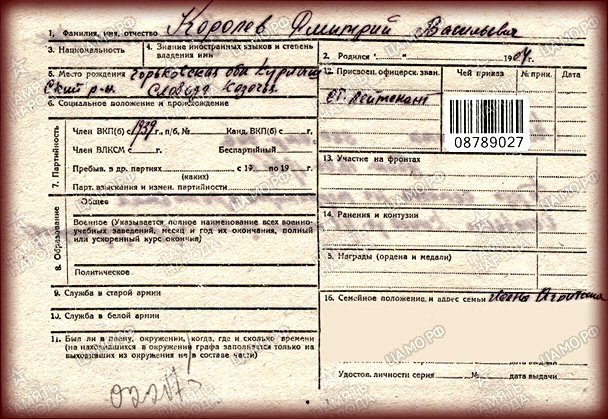 1. Фамилия, имя, отчество Коропов Дмитрий Васильевич
3. Национальность
4. Знание иностранных языков и степень владения ими
2. Родился „ “ 1904г.
5. Место рождения Горьковская обл Курмыш
ский р-н. Слобода Казачья
6. Социальное положение и происхождение
12. Присвоен. офицерск. зван.
Чей приказ
№ прик.
Дата
ст. лейтенант
08789027
7. Партийность
Член ВКП(б) с 1939 г., п/б, № Канд. ВКП(б) с г.
Член ВЛКСМ с г. Беспартийный
Пребыв. в др. партиях с 19 по 19 г.
(каких)
Парт. взыскания и измен. партийности
13. Участие на фронтах
8. Образование
Общее
Военное (Указывается полное наименование всех военно-
учебных заведений, месяц и год их окончания, полный
или ускоренный курс окончил)
Политическое
14. Ранения и контузии
5. Награды (ордена и медали)
9. Служба в старой армии
10. Служба в белой армии
16. Семейное положение, и адрес семьи жена
11. Был ли в плену, окружении, когда, где и сколько времени
(на находившихся в окружении графа заполняется только на
выходивших из окружения не в составе части)
дата выдачи
Удостов. личности серия № дата выдачи
ЦАМО.РФ
ПАМЯТЬ НАРОДА